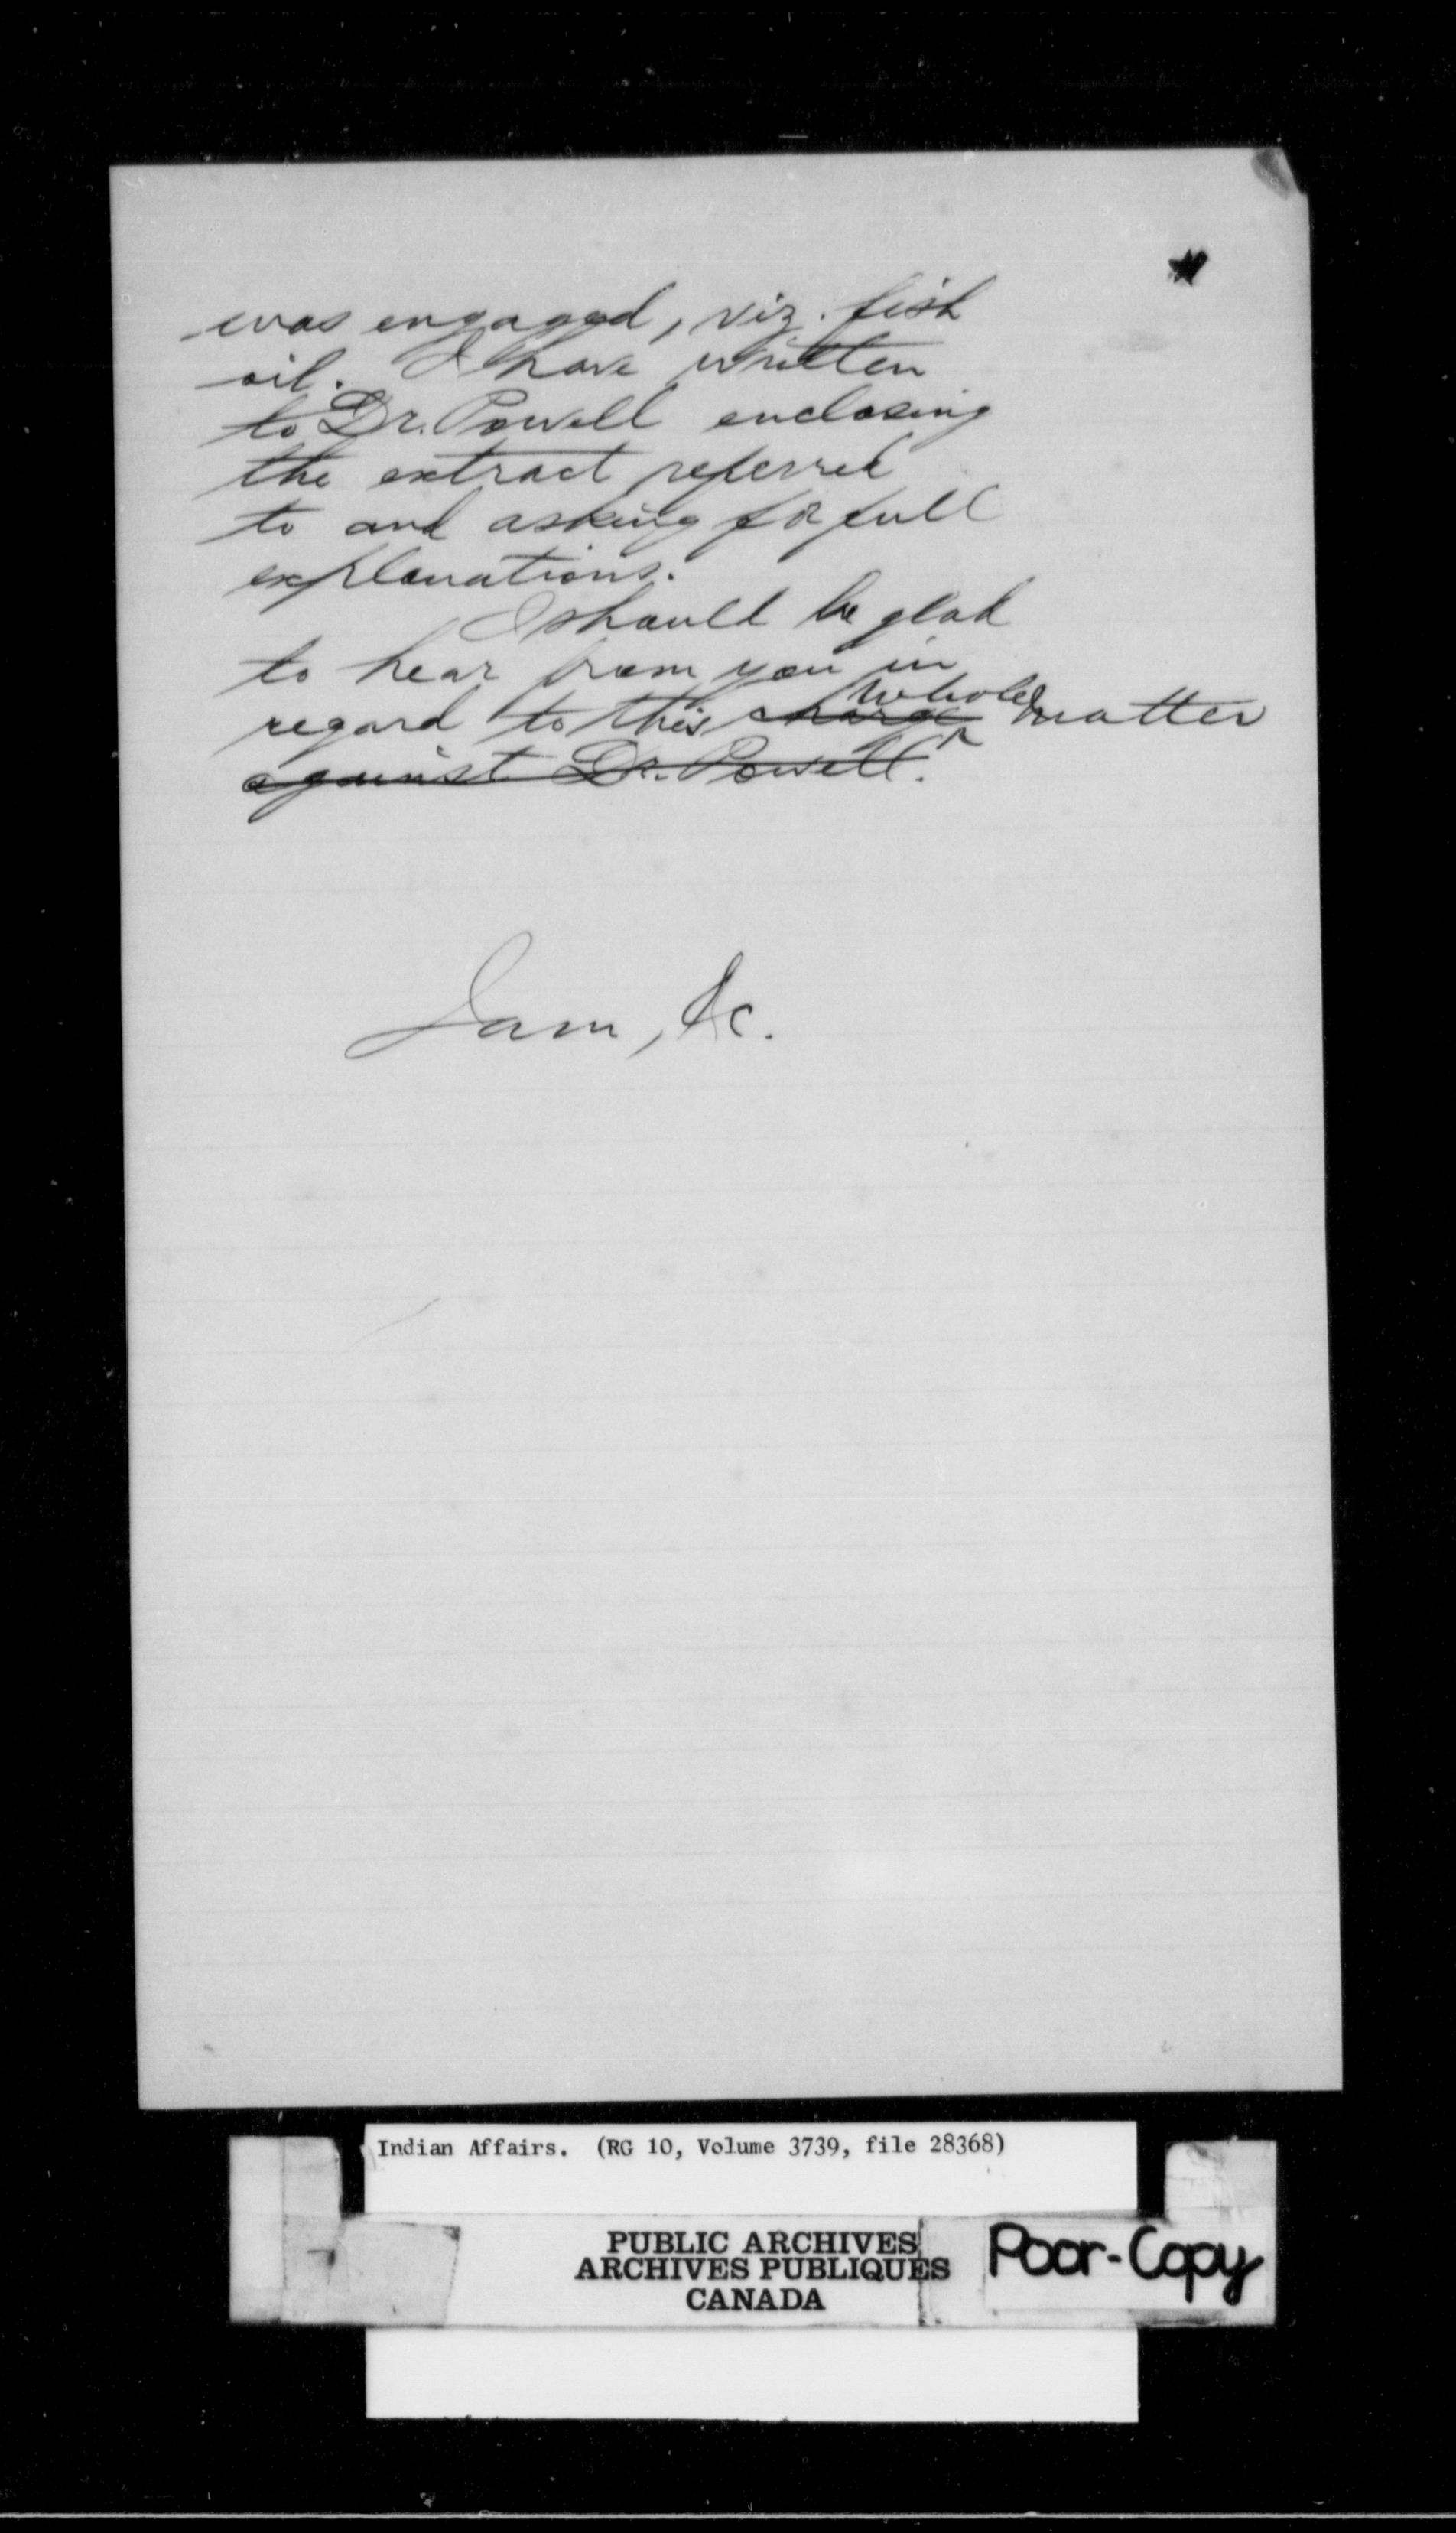 was engaged, viz. fish
oil. I have written
to Dr. Powell enclosing
the extract referred
to and asking for full
explanations.
I should be glad
to hear from you in
whole
regard to this charge matter
against Dr. Powell.
I am, &c.
Indian Affairs. (RG 10, Volume 3739, file 28368)
PUBLIC ARCHIVES
ARCHIVES PUBLIQUES
CANADA
Poor-Copy